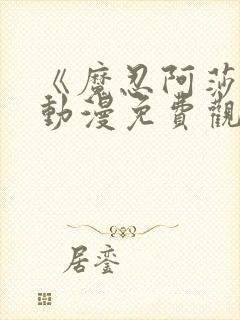 《魔忍阿莎
動漫免費觀
居鸾